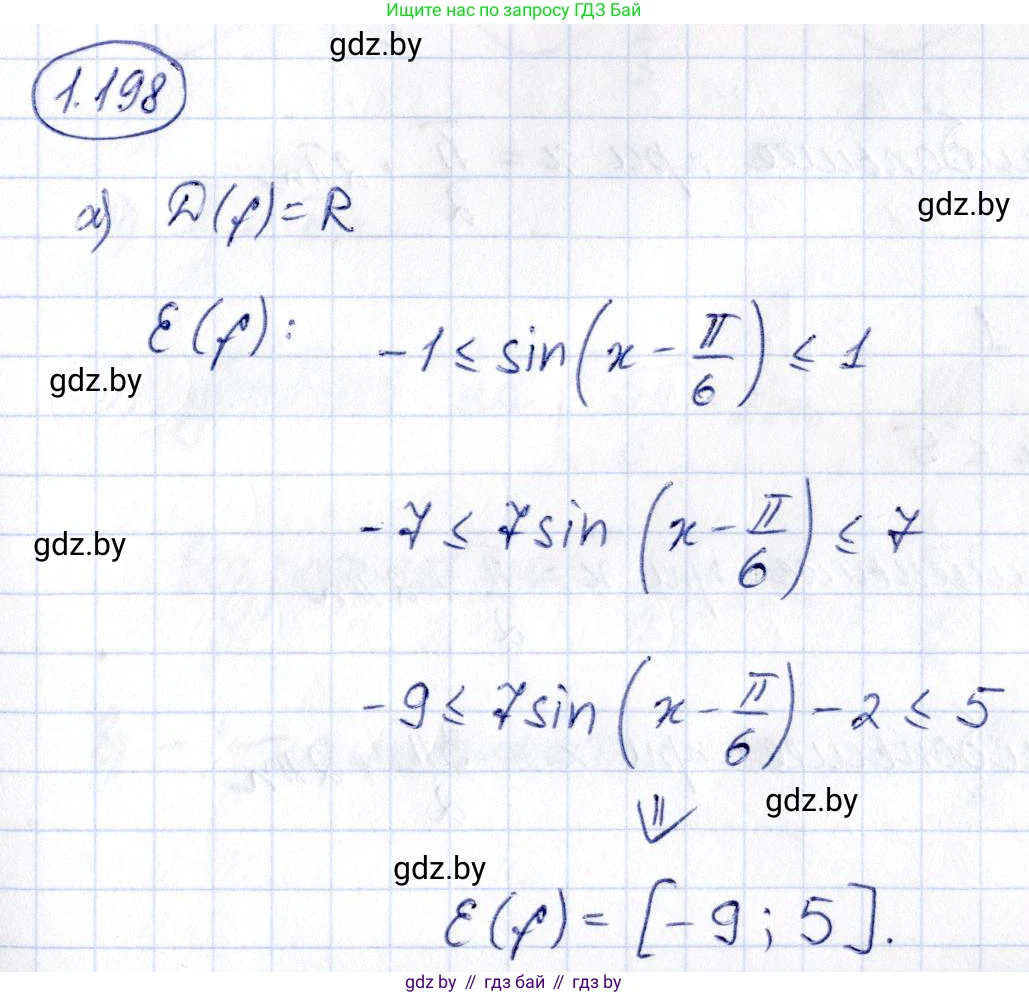 Ищите нас по запросу ГДЗ Бай
gdz.by
1.198
gdz.by
а) D(f)=R
E(f): -1 ≤ sin(x - π/6) ≤ 1
gdz.by
-7 ≤ 7sin(x - π/6) ≤ 7
gdz.by
-9 ≤ 7sin(x - π/6) - 2 ≤ 5
⇓
gdz.by
gdz.by
E(f) = [-9; 5].
gdz.by // гдз бай // гдз by